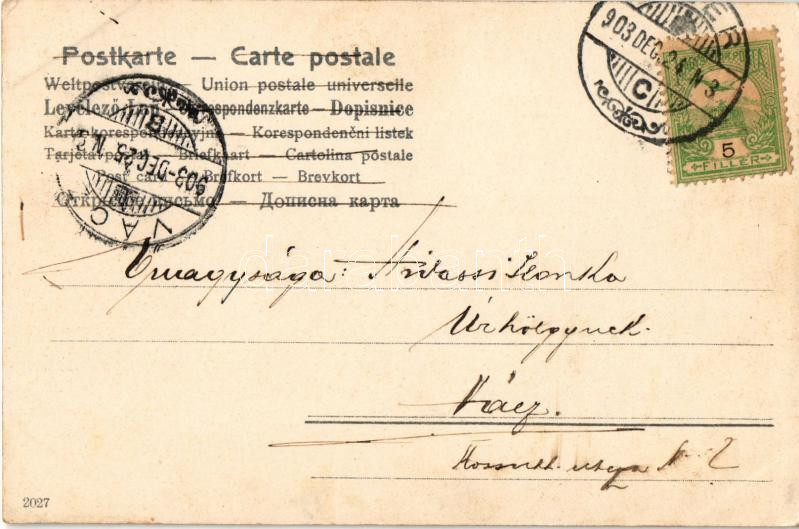 Postkarte — Carte postale
Weltpostverein — Union postale universelle
Levelező-Lap — Correspondenzkarte — Dopisnice
Karta korespondencyjna — Korespondenční listek
Tarjeta postal — Briefkaart — Cartolina postale
Post card — Brefkort — Brevkort
Открытое письмо — Дописна карта
VÁC
903 DEC 25 N 2
903 DEC 24 N 3
C
5
FILLER
Őnagysága: Nivassi Ilonka
Úrhölgynek
Vácz.
Kossuth utcza N 2
2027
darabanth